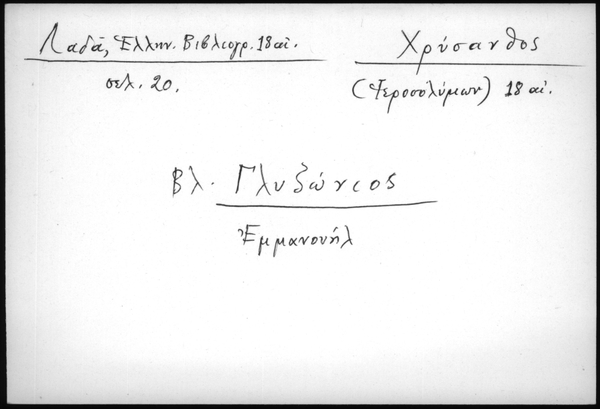 Λαδᾶ, Ἑλλην. Βιβλιογρ. 18 αἰ.
σελ. 20.
Χρύσανθος
(Ἱεροσολύμων) 18 αἰ.
Βλ. Γλυζώνιος
Ἐμμανουήλ